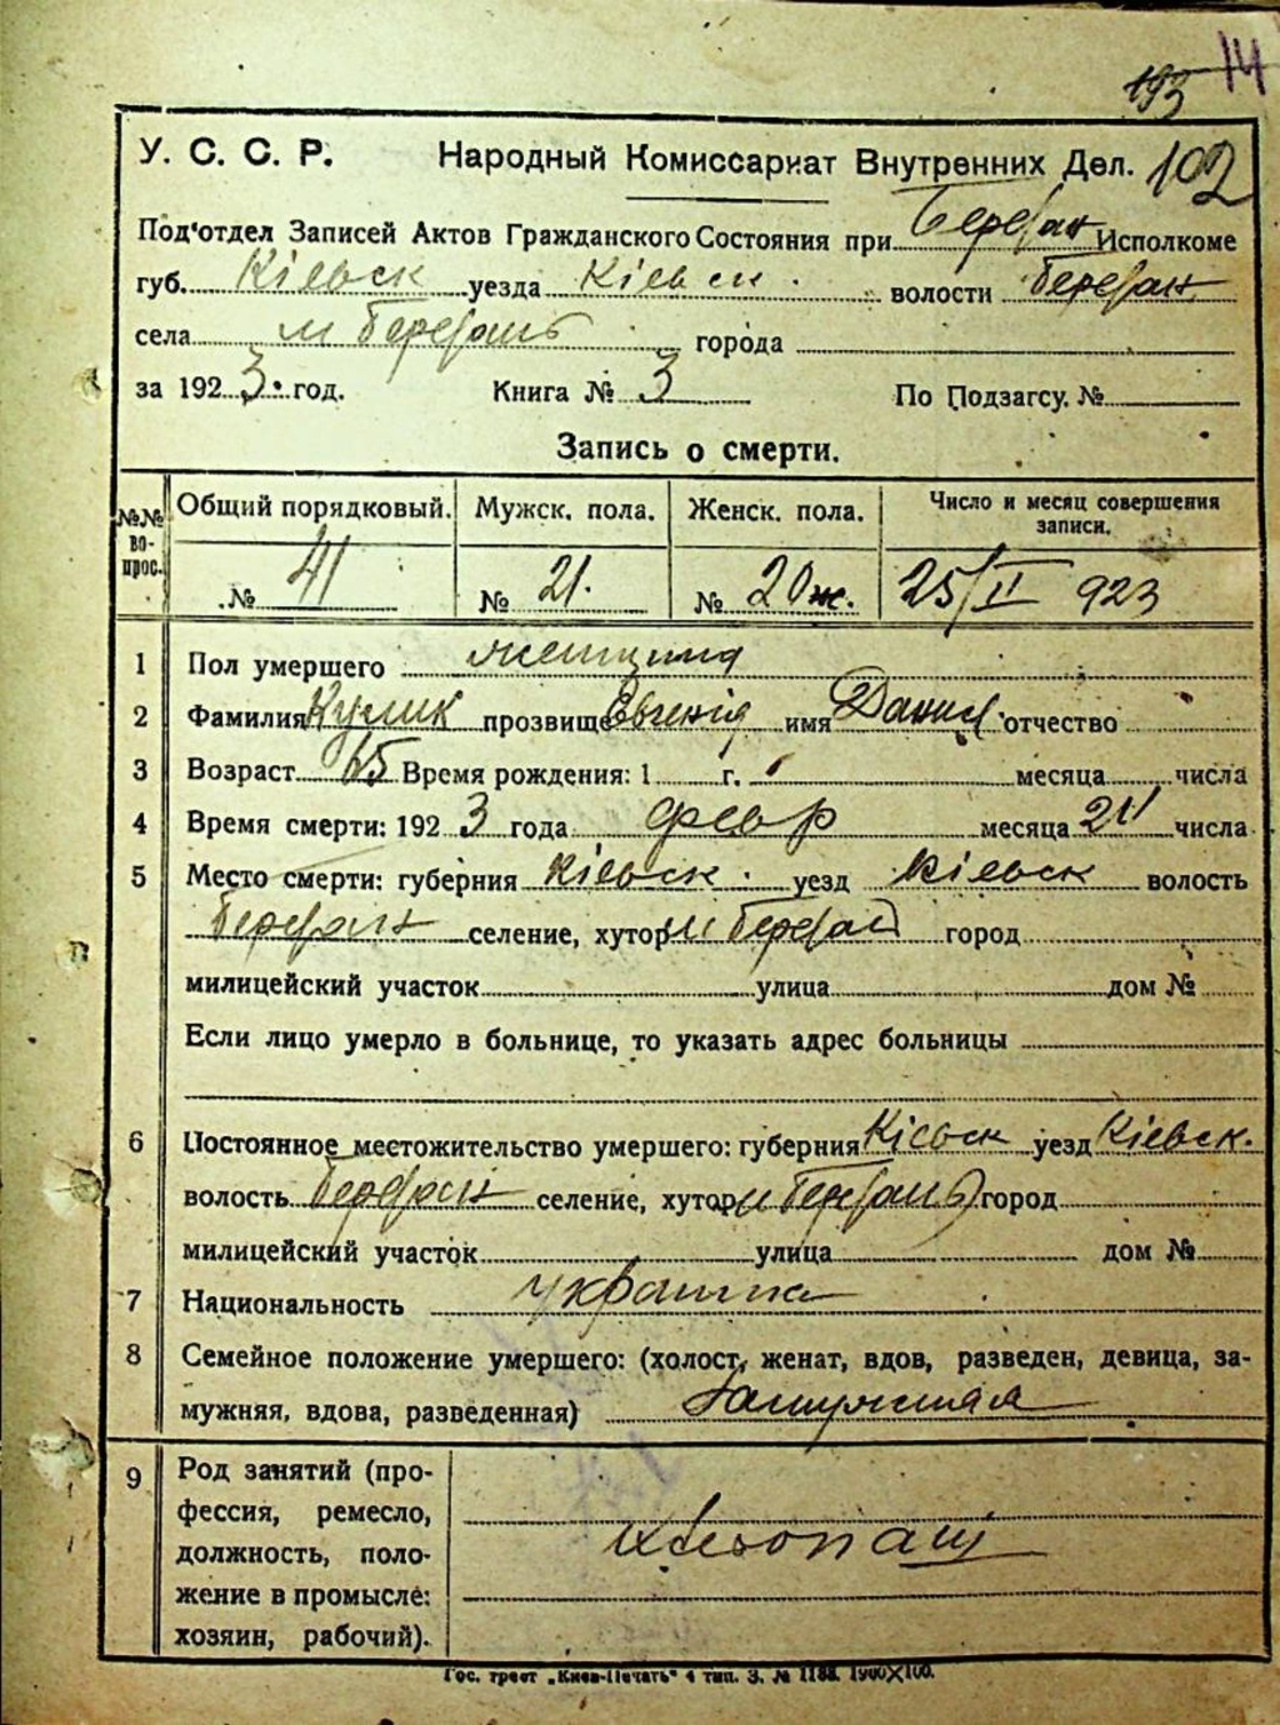 193 14
У. С. С. Р. Народный Комиссариат Внутренних Дел. 102
Под'отдел Записей Актов Гражданского Состояния при Березан Исполкоме
губ. Кіевск уезда Кіевск. волости Березан
села м Березань города
за 1923. год. Книга № 3 По Подзагсу. №
Запись о смерти.
№№ во-прос. Общий порядковый. Мужск. пола. Женск. пола. Число и месяц совершения записи.
№ 41 № 21. № 20ж. 25/II 923
1 Пол умершего женщина
2 Фамилия Кулик прозвище Евгенія имя Данил отчество
3 Возраст 65 Время рождения: 1 г. месяца числа
4 Время смерти: 1923 года февр месяца 24 числа
5 Место смерти: губерния Кіевск. уезд Кіевск волость
Березан селение, хутор м Березан город
милицейский участок улица дом №
Если лицо умерло в больнице, то указать адрес больницы
6 Постоянное местожительство умершего: губерния Кіевск уезд Кіевск.
волость Березан селение, хутор м Березань город
милицейский участок улица дом №
7 Национальность
8 Семейное положение умершего: (холост, женат, вдов, разведен, девица, за-
мужняя, вдова, разведенная) Замужняя
9 Род занятий (про-
фессия, ремесло,
должность, поло-
жение в промысле:
хозяин, рабочий).
Гос. трест „Киев-Печать" 4 тип. З. № 1188. 1900×100.